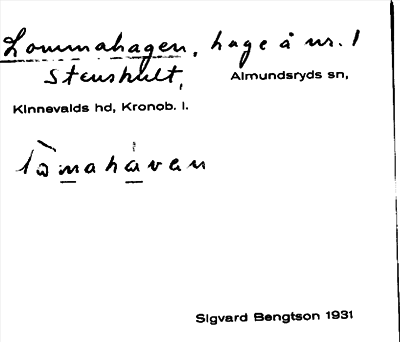 Lommahagen, hage å nr. 1
Stenshult, Almundsryds sn,
Kinnevalds hd, Kronob. l.
lòmahávan
Sigvard Bengtson 1931